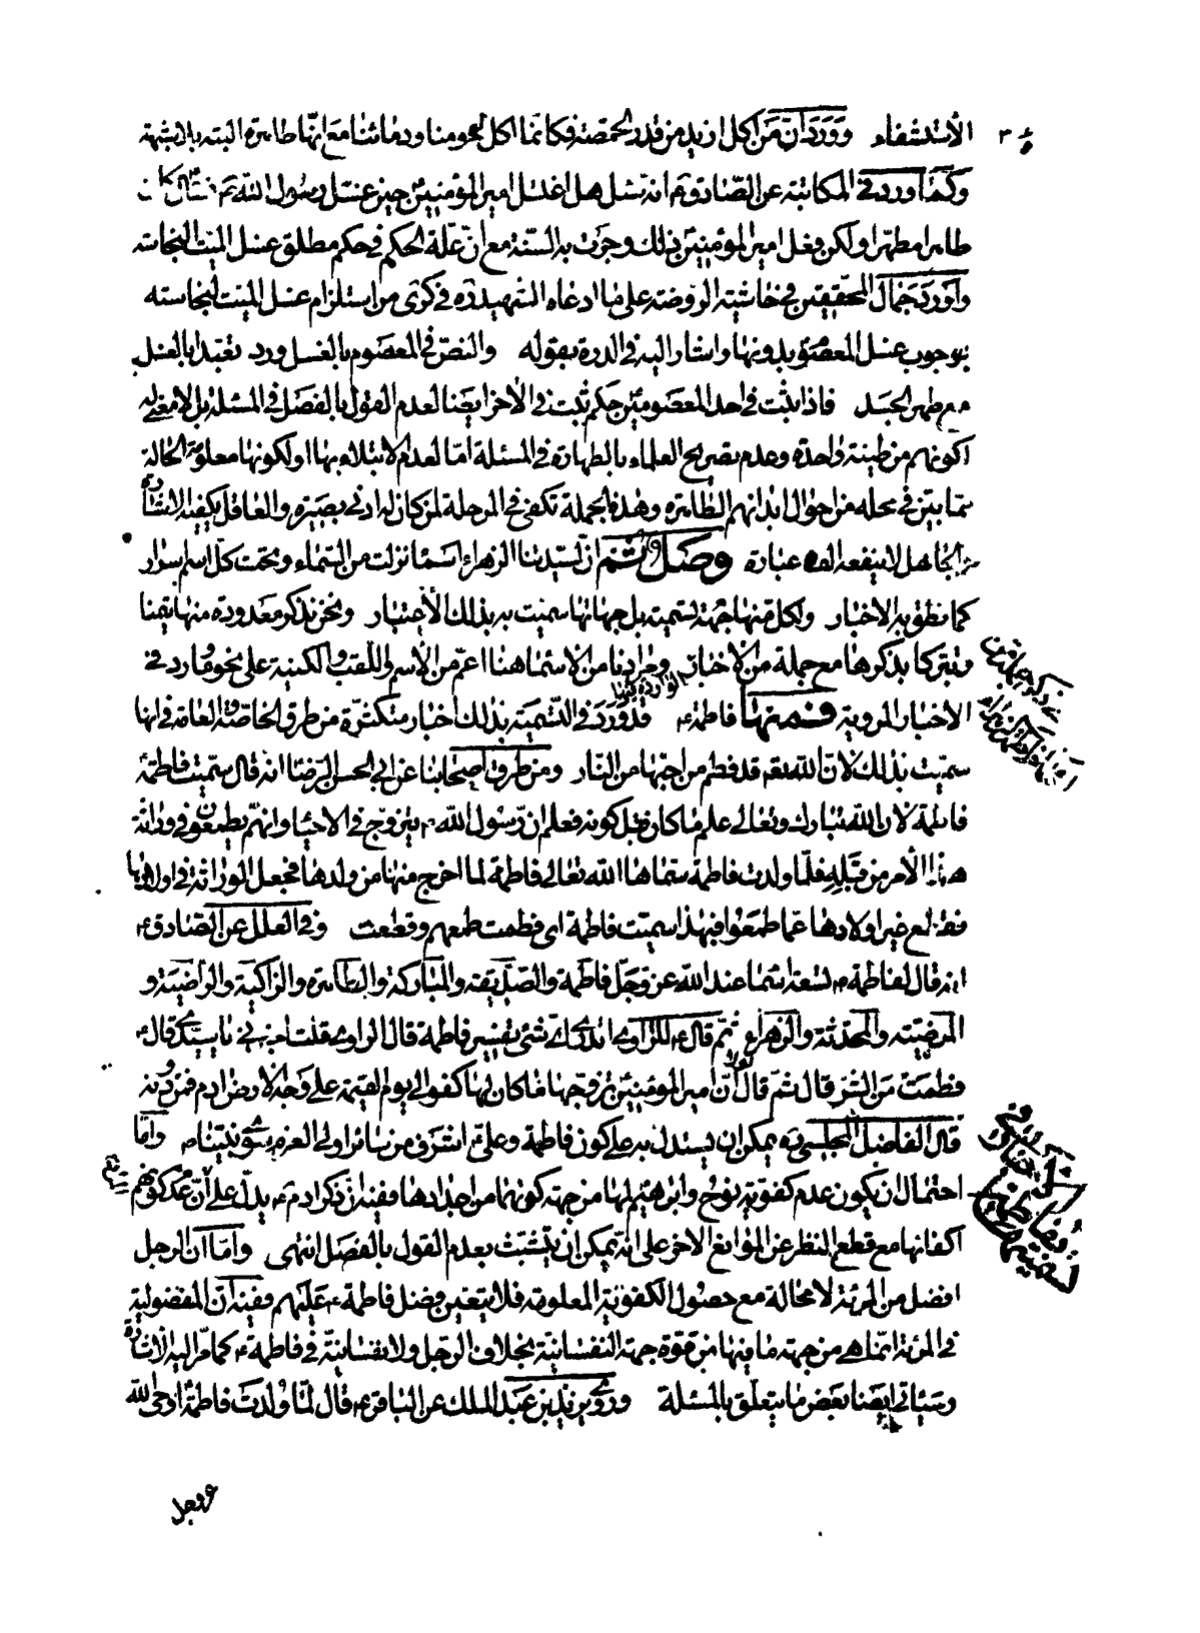 الاستشفاء وورد انّ من اكل ازيد من قدر الحمّصة فكانّما اكل لحومنا ودمائنا مع انّها طاهرة البته بلا شبهة
وكما ورد في المكاتبة عن الصّادق ع انه سئل هل اغتسل امير المؤمنين حين غسل رسول الله ص فقال كان
طاهرا مطهرا ولكن فعل امير المؤمنين ذلك وجرت به السنّة مع انّ علّة الحكم في حكم مطلق غسل الميّت النجاسة
واورد جمال المحققين في حاشية الروضة على ما ادعاه الشهيد ره في كرى من استلزام غسل الميت لنجاسته
بوجوب غسل المعصوم بدونها واشار اليه في الدرة بقوله والنصّ في المعصوم بالغسل ورد تعبّدا بالغسل
مع طهر الجسد فاذا ثبت في احد المعصومين حكم ثبت في الاخر ايضا لعدم القول بالفصل في المسئلة بل لا معنى له
لكونهم من طينة واحدة وعدم تصريح العلماء بالطهارة في المسئلة امّا لعدم الابتلاء بها او لكونها معلومة الحالة
ممّا بيّن في محله من احوال ابدانهم الطّاهرة وهذه الجملة تكفي في المرحلة لمن كان له ادنى بصيرة والعاقل يكفيه الاشارة
والجاهل لا ينفعه الف عبارة وصل ثم انّ لسيدتنا الزهراء اسما نزلت من السّماء وتحت كلّ اسم اسرار
كما نطق به الاخبار ولكل منها جهة تسمية بل جهاتها سميت به بذلك الاعتبار ونحن نذكر معدودة منها تيمّنا
وتبرّكا بذكرها مع جملة من الاخبار الواردة فيها ومرادنا من الاسماء هنا اعمّ من الاسم واللّقب والكنية على نحو ما ورد في
الاخبار المروية فمنها فاطمة ع قد ورد في التسمية بذلك اخبار متكثّرة من طرق الخاصّة والعامّة في انها
سمّيت بذلك لانّ الله تع قد فطم من احبّها من النّار ومن طرق اصحابنا عن ابي الحسن الرّضا ع انه قال سمّيت فاطمة
فاطمة لانّ الله تبارك وتعالى علم ما كان قبل كونه فعلم انّ رسول الله ص يتزوّج في الاحياء وانهم يطمعون في وراثة
هذا الامر من قبله فلمّا ولدت فاطمة سمّاها الله تعالى فاطمة لما اخرج منها من ولدها فجعل الوراثة في اولادها
فقطع غير اولادها عمّا طمعوا فبهذا سميت فاطمة اى فطمت طمعهم وقطعت وفي العلل عن الصّادق ع
انه قال لفاطمة ع تسعة اسما عند الله عزّ وجلّ فاطمة والصّدّيقة والمباركة والطّاهرة والزّاكية والرّاضية و
المرضيّة والمحدّثة والزهراء ثمّ قال ع للرّاوي اتدرى اىّ شئ تفسير فاطمة قال الراوى قلت اخبرني يا سيّدى قال ع
فطمت من الشّرّ قال ثمّ قال لولا انّ امير المؤمنين تزوّجها ما كان لها كفو الى يوم القيمة على وجه الارض ادم فمن دونه
قال الفاضل المجلسي ره يمكن ان يستدل به على كون فاطمة وعلى ع اشرف من سائر اولى العزم سوى نبيّنا ص وامّا
احتمال ان يكون عدم كفويّة نوح وابراهيم لها من جهة كونهما من اجدادها ففيه انّ ذكر ادم ع يدلّ على انّ عدم كونهم
اكفائها مع قطع النظر عن الموانع الاخر على انّه يمكن ان يتشبّث بعدم القول بالفصل انتهى وامّا انّ الرجل
افضل من المرئة لا محالة مع حصول الكفويّة المعلومة فلا يتعيّن فضل فاطمة ع عليهم ففيه انّ المفضوليّة
في المرئة انّما هي من جهة ما فيها من قوّة جهة النفسانيّة بخلاف الرّجل ولا نفسانيّة في فاطمة ع كما مرّ اليه الاشارة
وسيأتي ايضا بعض ما يتعلّق بالمسئلة وروى يزيد بن عبد الملك عن الباقر ع قال لمّا ولدت فاطمة اوحى الله
عز وجل